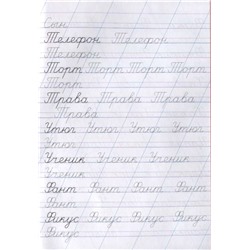 Сын
Телефон Телефон
Телефон
Торт Торт Торт Торт
Торт
Трава Трава Трава
Трава
Утюг Утюг Утюг Утюг
Утюг
Ученик Ученик Ученик
Ученик
Фант Фант Фант Фант
Фант
Фикус Фикус Фикус
Фикус